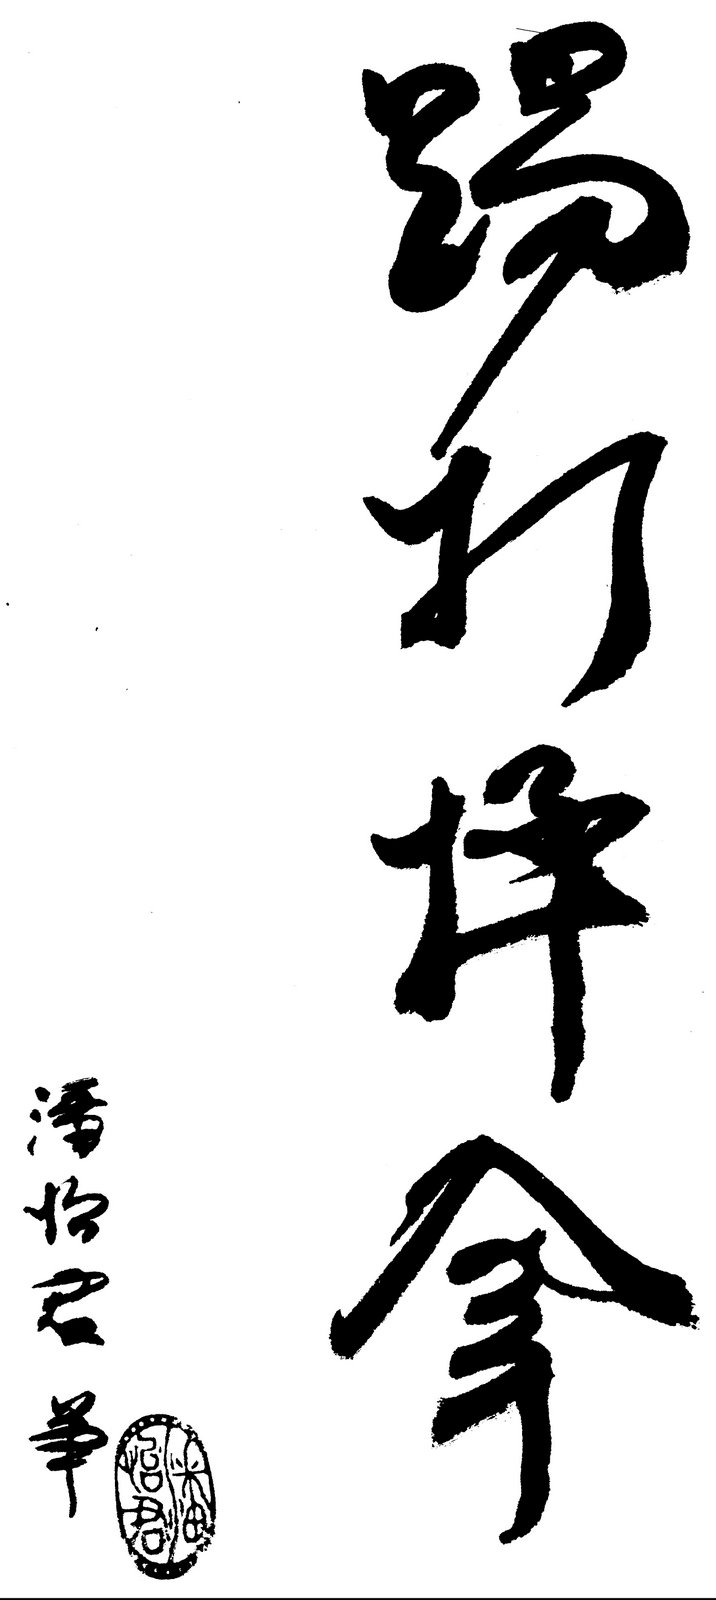 踢打摔拿
潘怡君筆
潘怡君